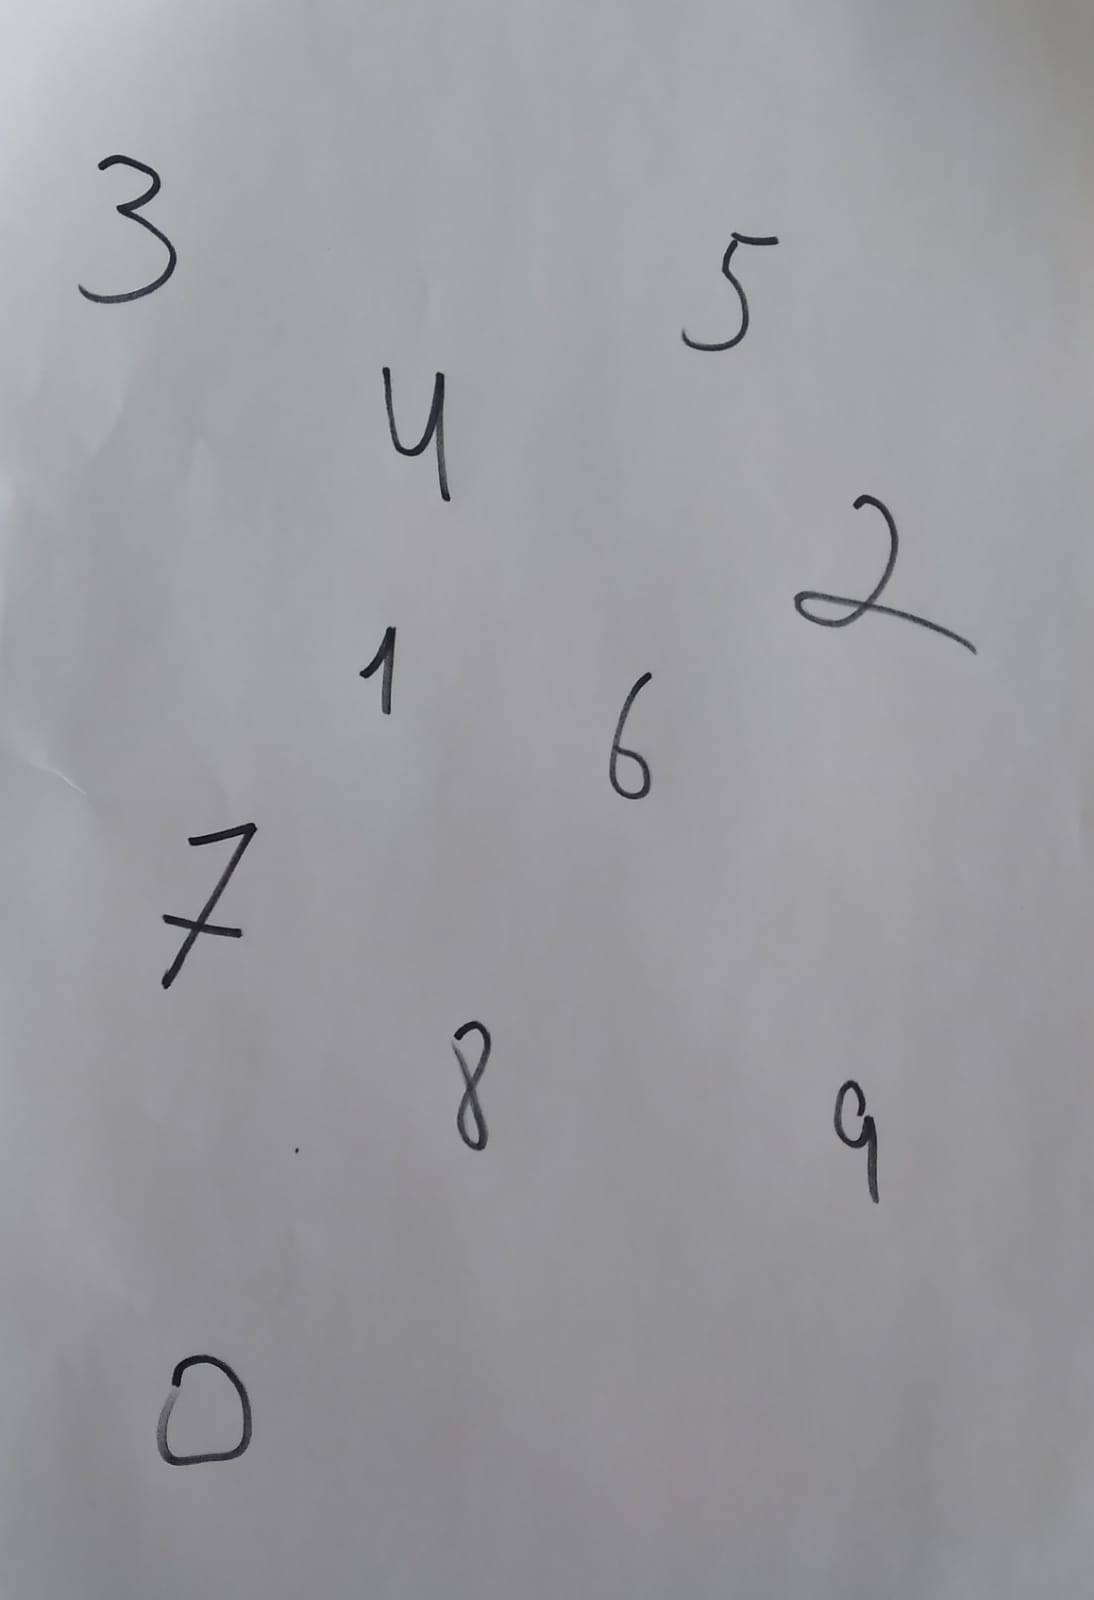 3
5
4
2
1
6
7
8
9
0